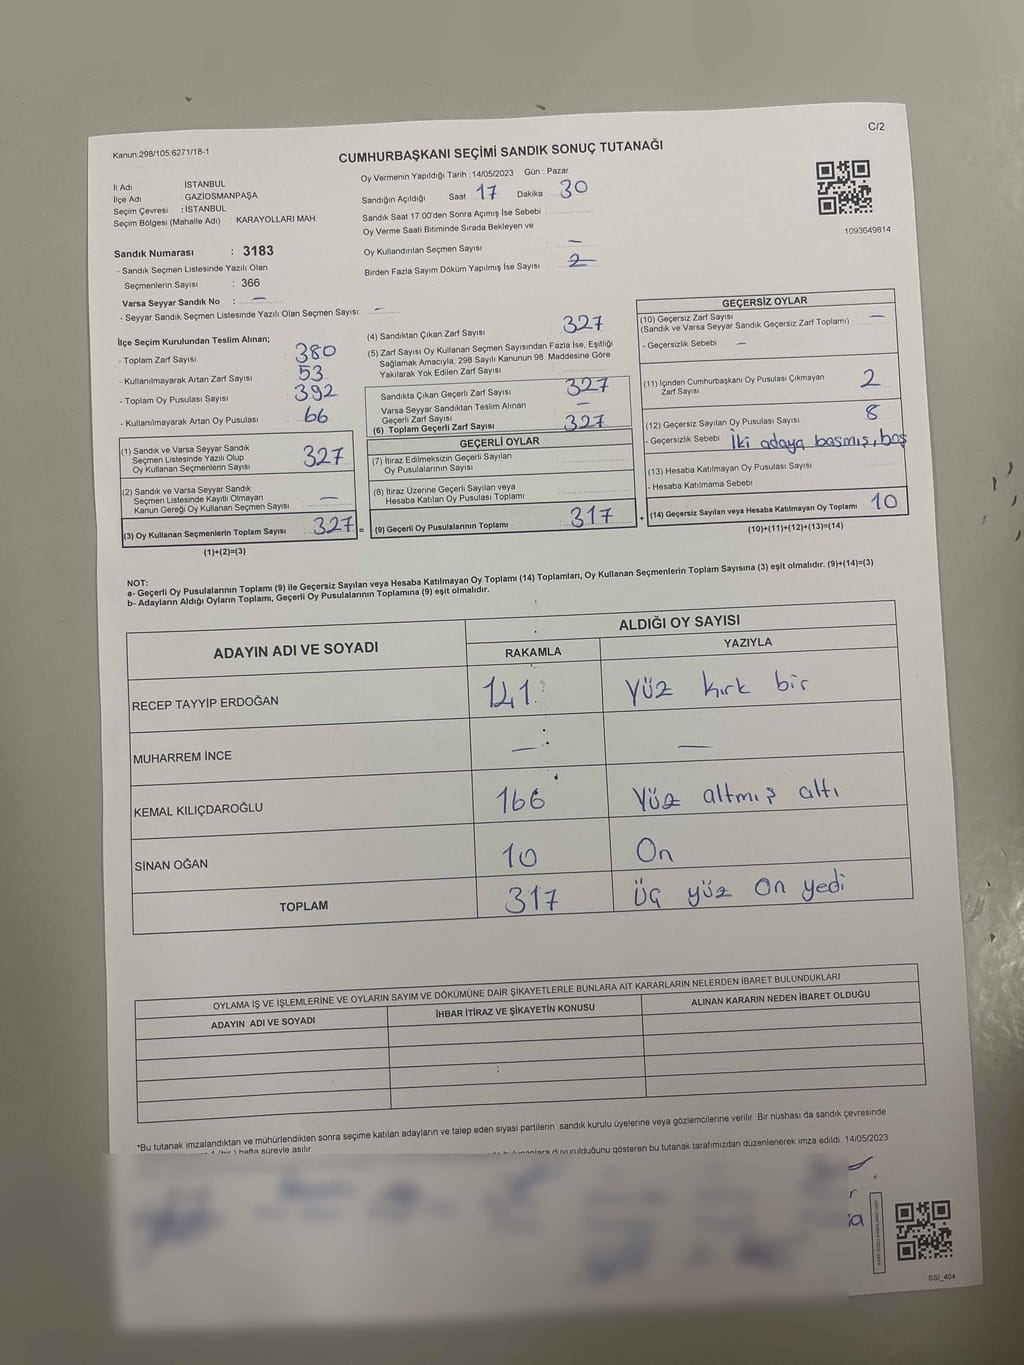 Kanun:298/105;6271/18-1
C/2
CUMHURBAŞKANI SEÇİMİ SANDIK SONUÇ TUTANAĞI
İl Adı : İSTANBUL
İlçe Adı : GAZİOSMANPAŞA
Seçim Çevresi : İSTANBUL
Seçim Bölgesi (Mahalle Adı) : KARAYOLLARI MAH.
Sandık Numarası : 3183
- Sandık Seçmen Listesinde Yazılı Olan
Seçmenlerin Sayısı : 366
Varsa Seyyar Sandık No : —
- Seyyar Sandık Seçmen Listesinde Yazılı Olan Seçmen Sayısı: —
Oy Vermenin Yapıldığı Tarih : 14/05/2023 Gün : Pazar
Sandığın Açıldığı Saat 17 Dakika 30
Sandık Saat 17 00'den Sonra Açımış İse Sebebi :
Oy Verme Saati Bitiminde Sırada Bekleyen ve
Oy Kullandırılan Seçmen Sayısı : —
Birden Fazla Sayım Döküm Yapılmış İse Sayısı : 2
1093649814
İlçe Seçim Kurulundan Teslim Alınan;
- Toplam Zarf Sayısı : 380
- Kullanılmayarak Artan Zarf Sayısı : 53
- Toplam Oy Pusulası Sayısı : 392
- Kullanılmayarak Artan Oy Pusulası : 66
(1) Sandık ve Varsa Seyyar Sandık
Seçmen Listesinde Yazılı Olup
Oy Kullanan Seçmenlerin Sayısı : 327
(2) Sandık ve Varsa Seyyar Sandık
Seçmen Listesinde Kayıtlı Olmayan
Kanun Gereği Oy Kullanan Seçmen Sayısı : —
(3) Oy Kullanan Seçmenlerin Toplam Sayısı : 327
(1)+(2)=(3)
(4) Sandıktan Çıkan Zarf Sayısı : 327
(5) Zarf Sayısı Oy Kullanan Seçmen Sayısından Fazla İse, Eşitliği
Sağlamak Amacıyla, 298 Sayılı Kanunun 98. Maddesine Göre
Yakılarak Yok Edilen Zarf Sayısı
Sandıkta Çıkan Geçerli Zarf Sayısı : 327
Varsa Seyyar Sandıktan Teslim Alınan
Geçerli Zarf Sayısı : —
(6) Toplam Geçerli Zarf Sayısı : 327
GEÇERLİ OYLAR
(7) İtiraz Edilmeksizin Geçerli Sayılan
Oy Pusulalarının Sayısı
(8) İtiraz Üzerine Geçerli Sayılan veya
Hesaba Katılan Oy Pusulası Toplamı
= (9) Geçerli Oy Pusulalarının Toplamı : 317
GEÇERSİZ OYLAR
(10) Geçersiz Zarf Sayısı
(Sandık ve Varsa Seyyar Sandık Geçersiz Zarf Toplamı) —
- Geçersizlik Sebebi —
(11) İçinden Cumhurbaşkanı Oy Pusulası Çıkmayan
Zarf Sayısı 2
(12) Geçersiz Sayılan Oy Pusulası Sayısı 8
- Geçersizlik Sebebi İki adaya basmış, boş
(13) Hesaba Katılmayan Oy Pusulası Sayısı
- Hesaba Katılmama Sebebi
+ (14) Geçersiz Sayılan veya Hesaba Katılmayan Oy Toplamı 10
(10)+(11)+(12)+(13)=(14)
NOT:
a- Geçerli Oy Pusulalarının Toplamı (9) ile Geçersiz Sayılan veya Hesaba Katılmayan Oy Toplamı (14) Toplamları, Oy Kullanan Seçmenlerin Toplam Sayısına (3) eşit olmalıdır. (9)+(14)=(3)
b- Adayların Aldığı Oyların Toplamı, Geçerli Oy Pusulalarının Toplamına (9) eşit olmalıdır.
ADAYIN ADI VE SOYADI ALDIĞI OY SAYISI
RAKAMLA YAZIYLA
RECEP TAYYİP ERDOĞAN 141 Yüz kırk bir
MUHARREM İNCE — —
KEMAL KILIÇDAROĞLU 166 Yüz altmış altı
SİNAN OĞAN 10 On
TOPLAM 317 Üç yüz On yedi
OYLAMA İŞ VE İŞLEMLERİNE VE OYLARIN SAYIM VE DÖKÜMÜNE DAİR ŞİKAYETLERLE BUNLARA AİT KARARLARIN NELERDEN İBARET BULUNDUKLARI
ADAYIN ADI VE SOYADI İHBAR İTİRAZ VE ŞİKAYETİN KONUSU ALINAN KARARIN NEDEN İBARET OLDUĞU
*Bu tutanak imzalandıktan ve mühürlendikten sonra seçime katılan adayların ve talep eden siyasi partilerin sandık kurulu üyelerine veya gözlemcilerine verilir. Bir nüshası da sandık çevresinde
hafta süreyle asılır.
duyurulduğunu gösteren bu tutanak tarafımızdan düzenlenerek imza edildi. 14/05/2023
SSI_404